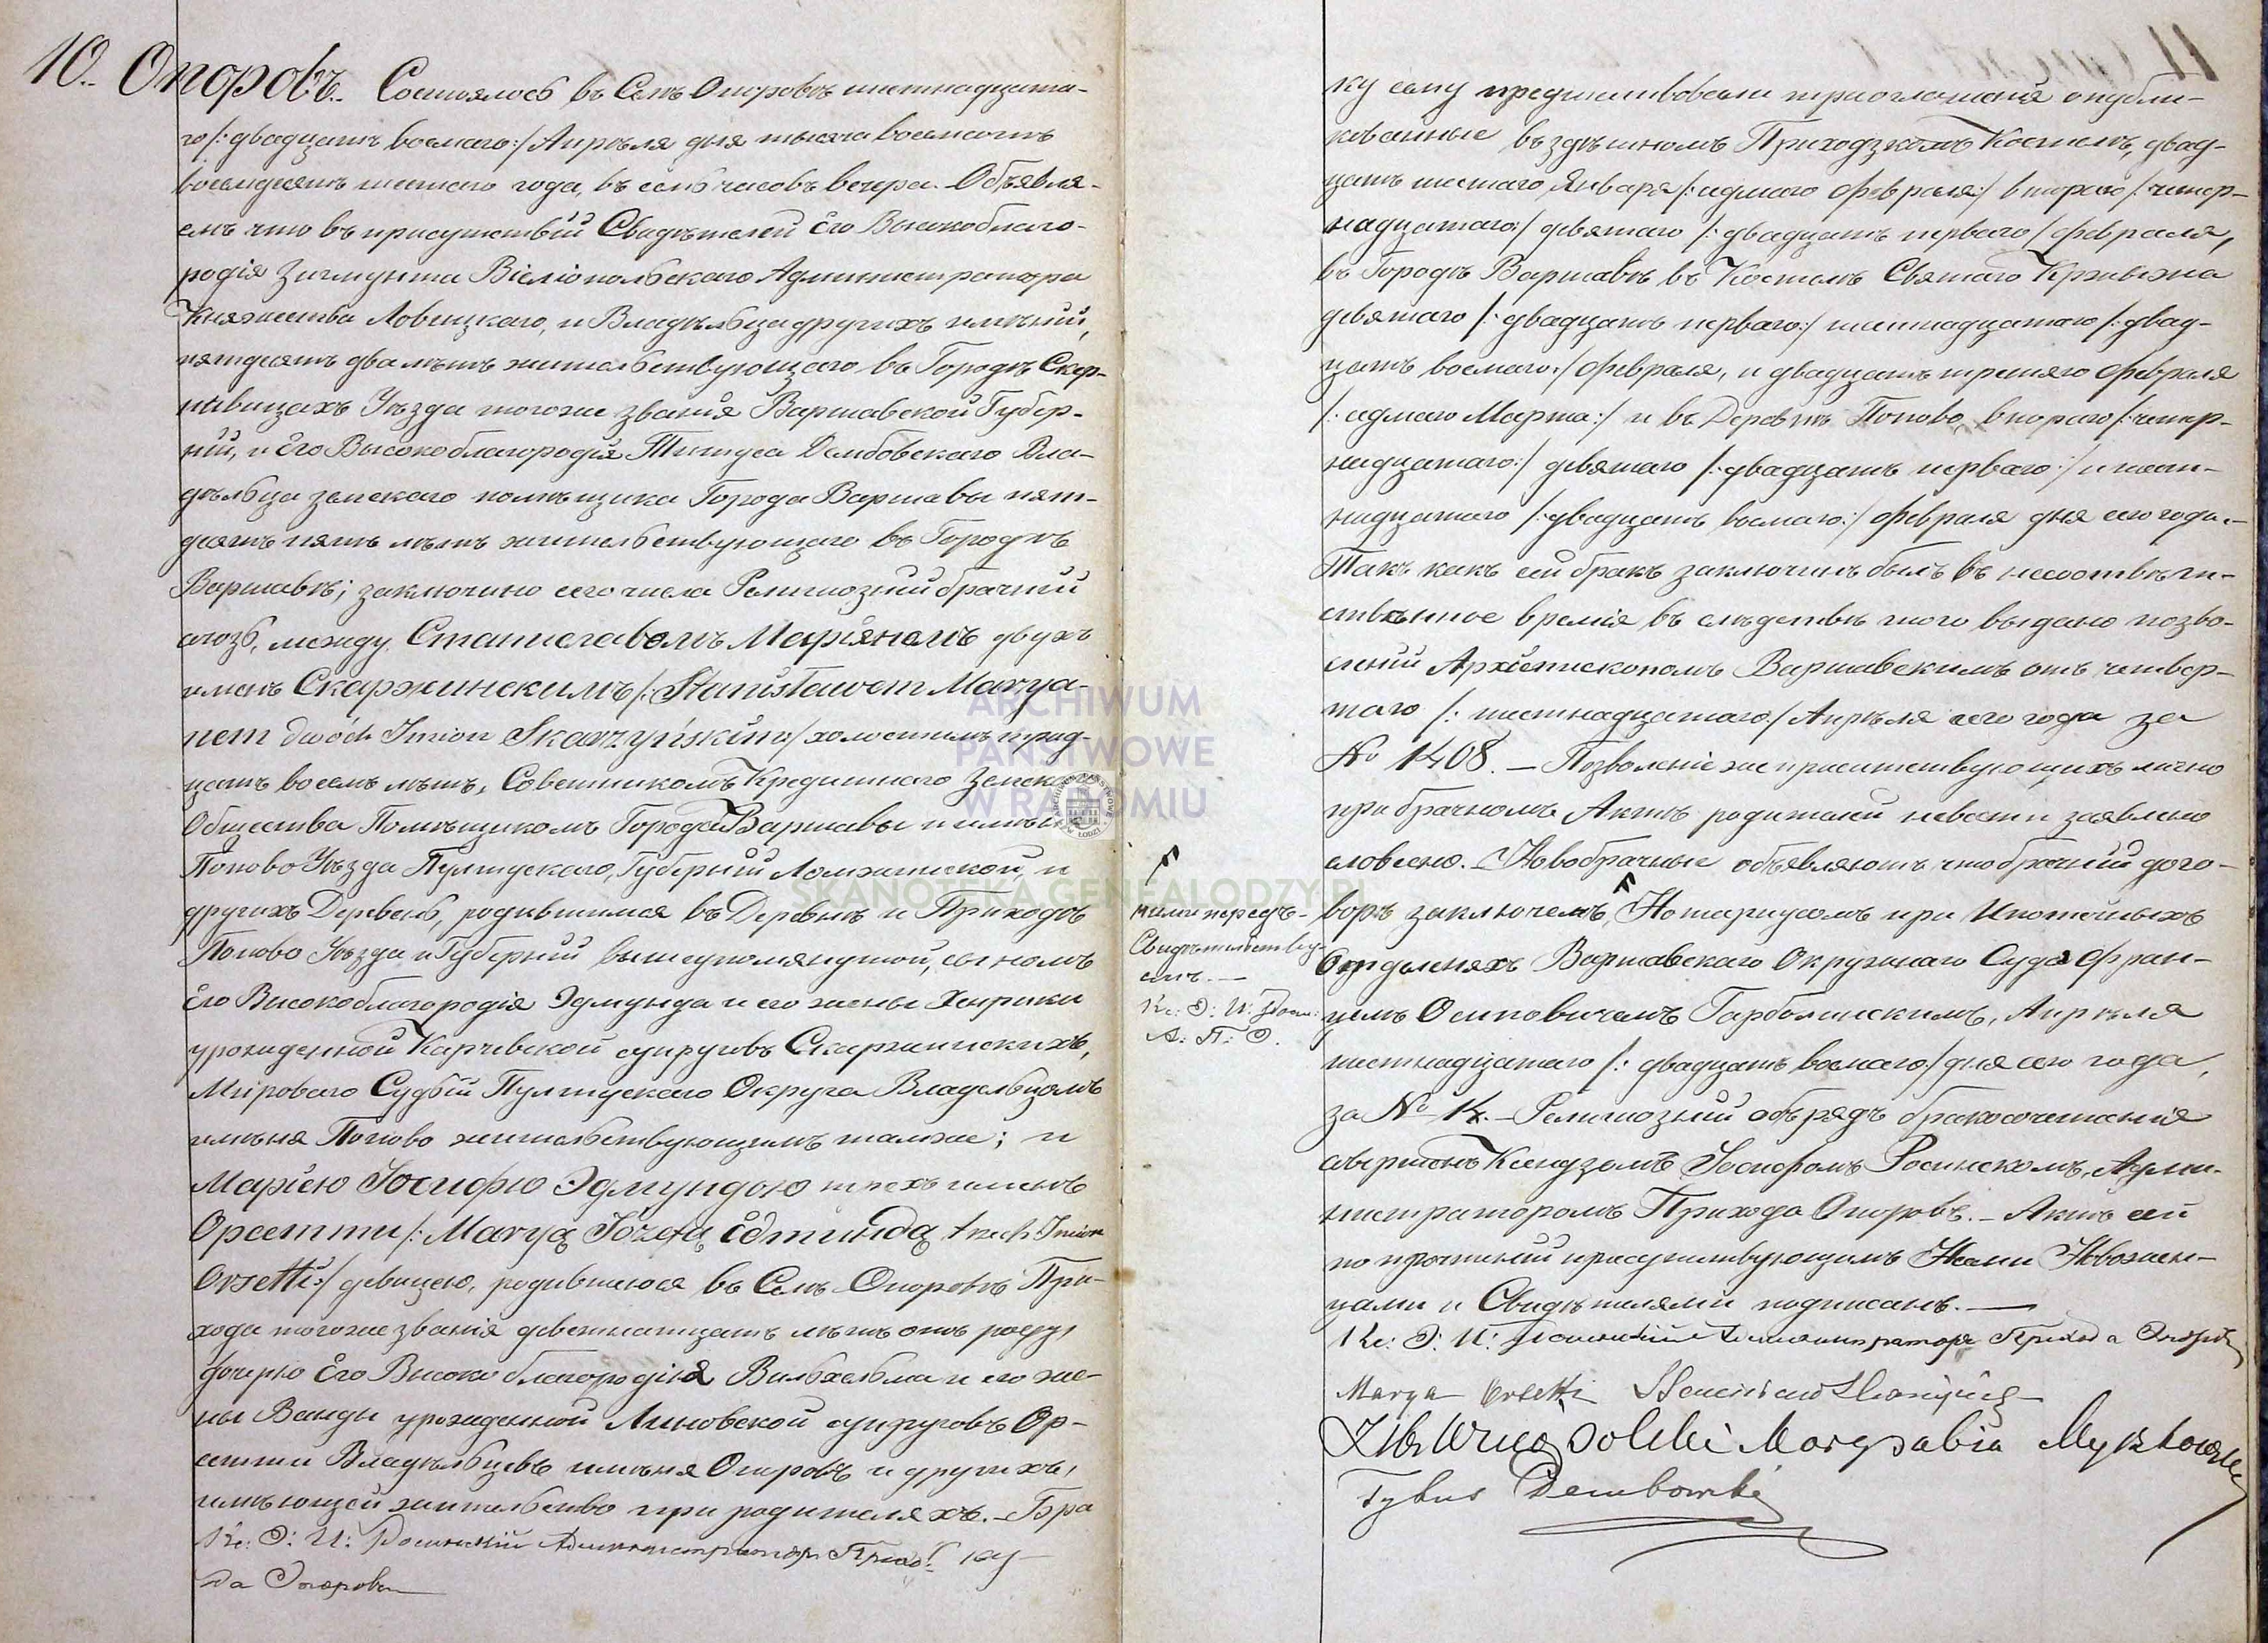 10. Опоровъ. Состоялось въ Селѣ Опоровѣ шестнадцата-
го /:двадцать восмаго:/ Апрѣля дня тысяча восемьсотъ
восемдесятъ шестаго года, въ семь часовъ вечера. Объявля-
емъ что въ присутствіи Свидѣтелей Его Высокоблаго-
родія Зигмунта Віеліопольскаго Администратора
Княжества Ловицкаго, и Владѣльца другихъ имѣній,
пятдесятъ два лѣтъ жительствующаго въ Городѣ Скер-
невицахъ Уѣзда тогоже званія Варшавской Губер-
ніи, и Его Высокоблагородія Титуса Дембовскаго Вла-
дѣльца земскаго помѣщика Города Варшавы пят-
десятъ пять лѣтъ жительствующаго въ Городѣ
Варшавѣ; заключено сего числа Религіозный брачный
союзъ, между Станиславомъ Маріяномъ двухъ
именъ Скаржинскимъ /: Stanisławem Marya-
nem dwóch Imion Skarzyńskim:/ холостымъ трид-
цать восемь лѣтъ, Советникомъ Кредитнаго Земска
Общества Помѣщикомъ Города Варшавы и имѣн
Попово Уѣзда Пултускаго, Губерніи Ломжинской, и
другихъ Деревень, родившимся въ Деревнѣ и Приходѣ
Попово Уѣзда и Губерніи вышеупомянутой, сыномъ
Его Высокоблагородія Эдмунда и его жены Хенрики
урожденной Карчевской супруговъ Скаржинскихъ,
Мироваго Судьи Пултускаго Округа Владельцомъ
имѣнія Попово жительствующимъ тамже; и
Маріею Іосифою Эдмундою трехъ именъ
Орсетти /: Maryą Józefą Edmundą trzech Imion
Orsetti:/ девицею, родившеюся въ Селѣ Опоровѣ При-
хода тогоже званія деветнатцать лѣтъ отъ роду,
дочерью Его Высокоблагородія Вильхельма и его же-
ны Ванды урожденной Линовской супруговъ Ор-
сетти Владѣльцевъ имѣнія Опоровъ и другихъ,
имѣющей жительство при родителяхъ. Бра
Кс: Э: И: Росинскій Администраторъ Прихо ку
да Опоровъ
ку сему предшествовали триоглошенія опубли-
кованные въ здѣшномъ Приходзкомъ Костелѣ, двад-
цать шестаго Января /:седмаго Февраля:/ втораго /:четыр-
надцатаго:/ девятаго /:двадцать перваго:/ Февраля,
въ Городѣ Варшавѣ въ Костелѣ Святаго Кржижа
девятаго /:двадцать перваго:/ шестнадцатаго /:двад-
цать восмаго:/ Февраля, и двадцать третяго Февраля
/:седмаго Марта:/ и въ Деревнѣ Попово, втораго /:четыр-
надцатаго:/ девятаго /:двадцать перваго:/ и шест-
надцатаго /:двадцать восмаго:/ Февраля дня сего года.
Такъ какъ сей бракъ заключенъ былъ въ несоотвѣт-
ственное времія въ слѣдствѣ того выдано позво-
леній Архіепископомъ Варшавскимъ отъ четвер-
таго /: шестнадцатаго:/ Апрѣля сего года за
№ 1408. — Позволеніе же присутствующихъ лично
при брачномъ Актѣ родителей невесты заявлено
словесно. — Новобрачные объявляютъ что брачный дого-
воръ заключенъ ими передъ- Нотаріусомъ при Ипотечныхъ
Свидѣтельству-
емъ.—
Кс: Э: И: Росин:
А: П: О.
Отделеняхъ Варшавскаго Окружнаго Суда Фран-
цемъ Осиповичемъ Гарболинскимъ, Апрѣля
шестнадцатаго /: двадцать восмаго:/ дня сего года,
за № 14. — Религіозный обрядъ бракосочетанія
совершонъ Ксендзомъ Іосифомъ Росинскомъ, Адми-
нистраторомъ Прихода Опоровъ. — Актъ сей
по прочтеніи присутствующимъ Нами Новожен-
цами и Свидѣтелями подписанъ. —
Кс: Э: И: Росинскій Администраторъ Прихода Опоровъ
Marya Orsetti Stanisław Skarzyński
Zyg Wielopolski Margrabia Myszkowski
Tytus Dembowski
ARCHIWUM
PAŃSTWOWE
W RADOMIU
SKANOTEKA.GENEALODZY.PL